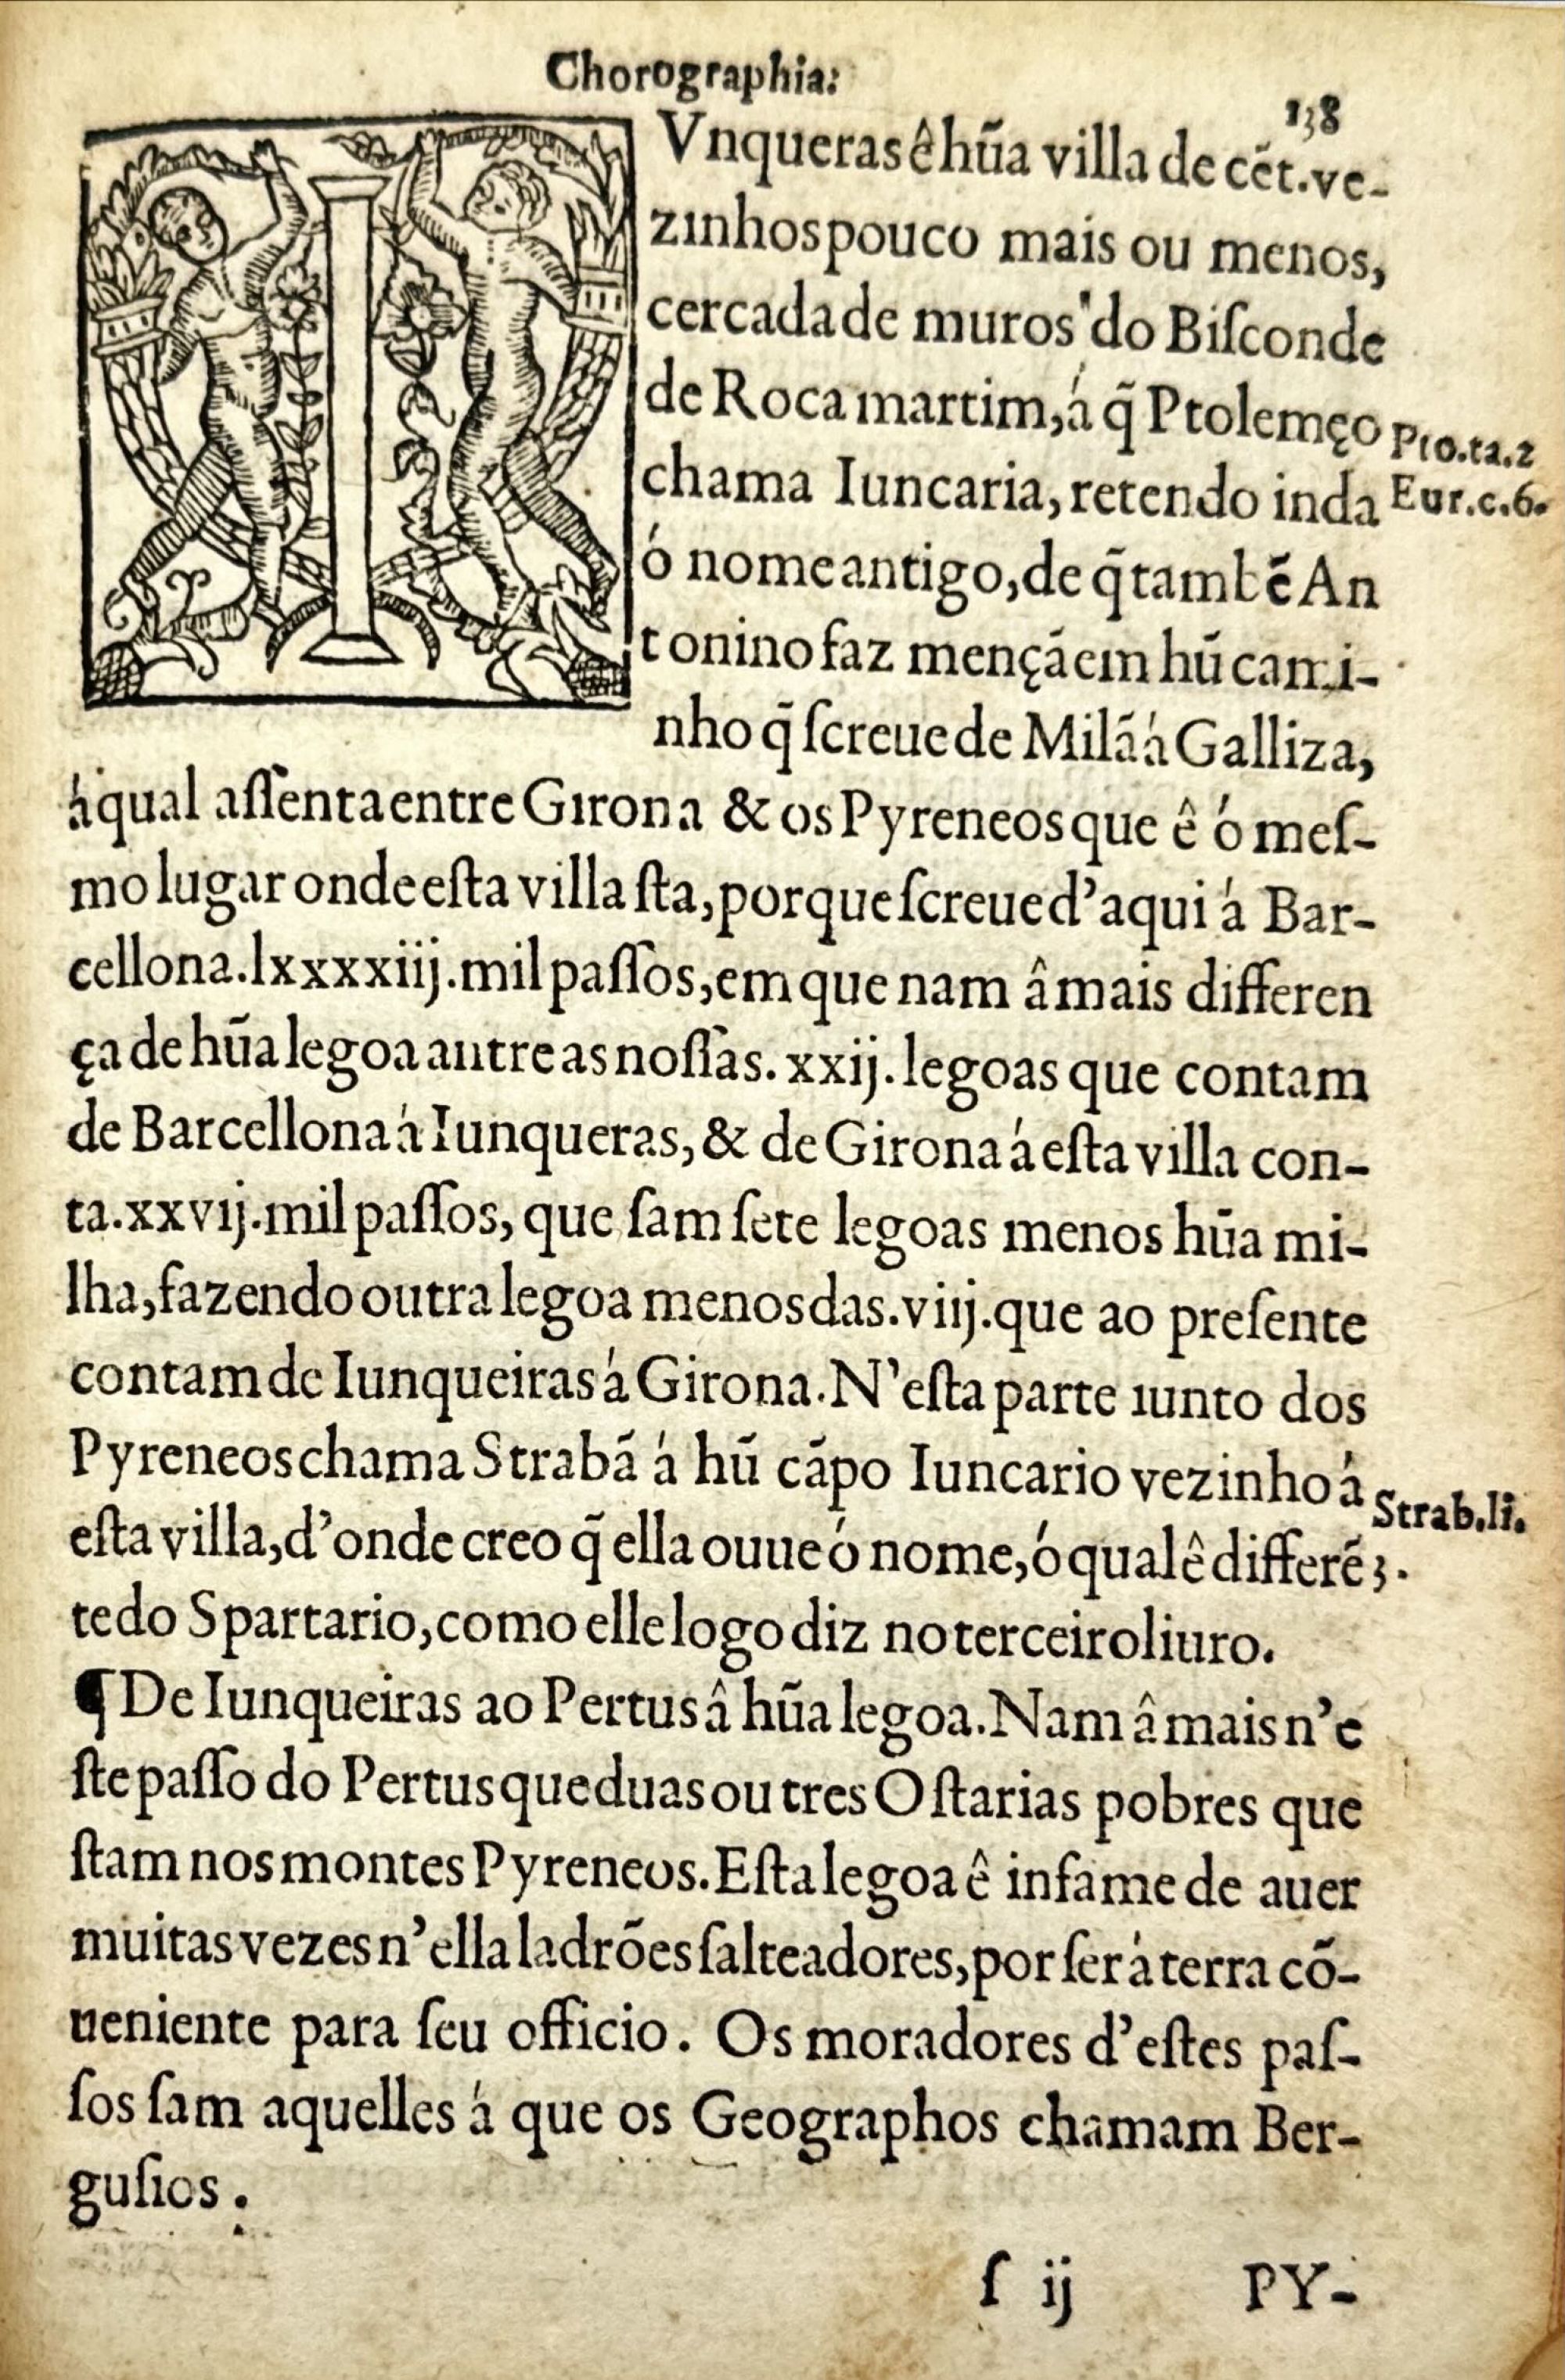 Chorographia.
138
IVnqueras ê hũa villa de cẽt. ve-
zinhos pouco mais ou menos,
cercada de muros do Biſconde
de Roca martim, á q̃ Ptolemęo
Pto.ta.2
chama Iuncaria, retendo inda
Eur.c.6.
ó nome antigo, de q̃ tambẽ An
tonino faz mençã em hũ cami-
nho q̃ ſcreue de Milã á Galliza,
á qual aſſenta entre Girona & os Pyreneos que ê ó meſ-
mo lugar onde eſta villa ſta, porque ſcreue d’aqui á Bar-
cellona. lxxxxiij. mil paſſos, em que nam â mais differen
ça de hũa legoa antre as noſſas. xxij. legoas que contam
de Barcellona á Iunqueras, & de Girona á eſta villa con-
ta. xxvij. mil paſſos, que ſam ſete legoas menos hũa mi-
lha, fazendo outra legoa menos das. viij. que ao preſente
contam de Iunqueiras á Girona. N’eſta parte iunto dos
Pyreneos chama Strabã á hũ cãpo Iuncario vezinho á
Strab.li.
eſta villa, d’onde creo q̃ ella ouue ó nome, ó qual ê differẽ
3.
te do Spartario, como elle logo diz no terceiro liuro.
¶ De Iunqueiras ao Pertus â hũa legoa. Nam â mais n’e
ſte paſſo do Pertus que duas ou tres Oſtarias pobres que
ſtam nos montes Pyreneos. Eſta legoa ê infame de auer
muitas vezes n’ella ladrões ſalteadores, por ſer á terra cõ-
ueniente para ſeu officio. Os moradores d’eſtes paſ-
ſos ſam aquelles á que os Geographos chamam Ber-
guſios.
ſ ij
PY-